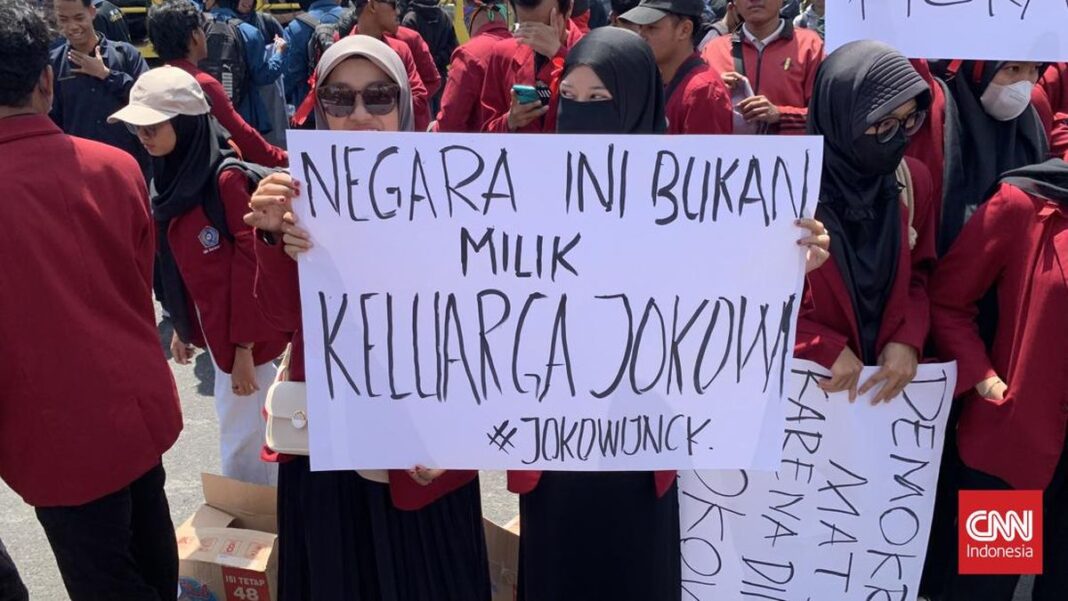 NEGARA INI BUKAN
MILIK
KELUARGA JOKOWI
#JOKOWIJNCK.
DEMOKR
MAT
KARENA DI
OKO
ISI TETAP
48
CNN
Indonesia